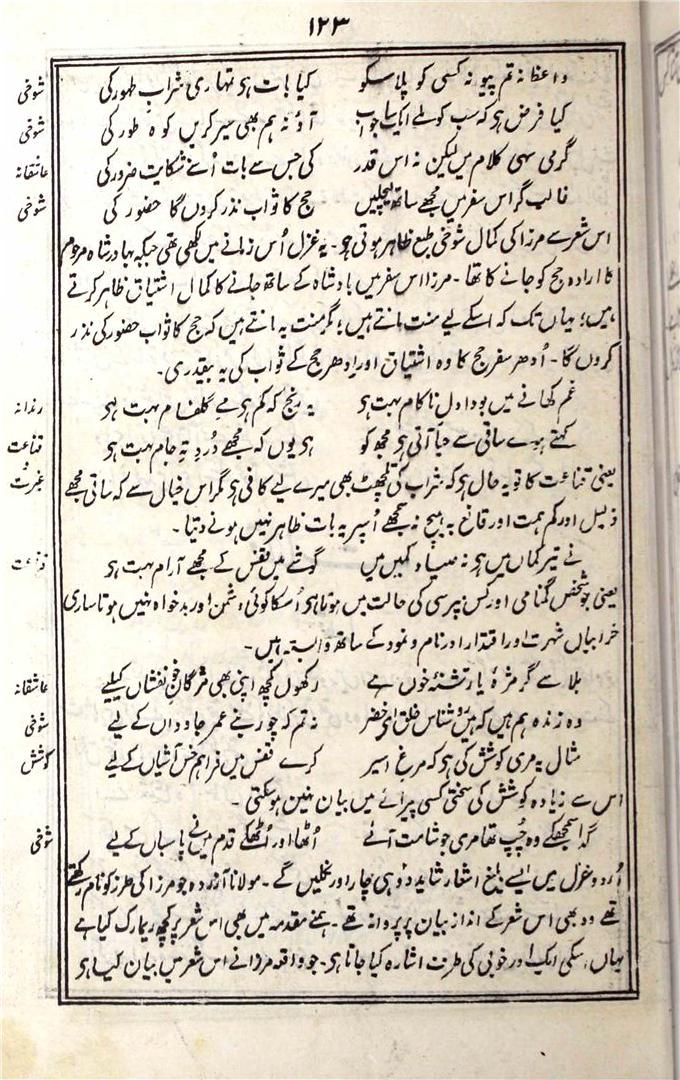 ۱۲۳
واعظ نہ تم پیو نہ کسی کو پلا سکو کیا بات ہو تمہاری شراب طہور کی شوخی
کیا فرض ہو کہ سب کو ملے ایک سا جواب آؤ نہ ہم بھی سیر کریں کوہ طور کی شوخی
گرمی سہی کلام میں لیکن نہ اس قدر کی جس سے بات اُسنے شکایت ضرور کی عاشقانہ
غالب گر اس سفر میں مجھے ساتھ لیچلیں حج کا ثواب نذر کروں گا حضور کی شوخی
اس شعر سے مرزا کی کمال شوخی طبع ظاہر ہوتی ہو۔ یہ غزل اُس زمانے میں لکھی تھی جبکہ بہادر شاہ مرحوم
کا ارادہ حج کو جانے کا تھا۔ مرزا اس سفر میں بادشاہ کے ساتھ جانے کا کمال اشتیاق ظاہر کرتے
ہیں؛ یہاں تک کہ اسکے لیے منت مانتے ہیں؛ مگر منت یہ مانتے ہیں کہ حج کا ثواب حضور کی نذر
کروں گا۔ اُدھر سفر حج کا وہ اشتیاق اور ادھر حج کے ثواب کی یہ بیقدری۔
غم کھانے میں بودا دل ناکام بہت ہو یہ رنج کہ کم ہو مے گلفام بہت ہو رندانہ
کہتے ہوے ساقی سے حیا آتی ہو مجھ کو ہو یوں کہ مجھے دُرد تہ جام بہت ہو قناعت و غیرت
یعنی قناعت کا تو یہ حال ہو کہ شراب کی تلچھٹ بھی میرے لیے کافی ہو مگر اس خیال سے کہ ساقی مجھے
ذلیل اور کم ہمت اور قانع بہ ہیچ نہ سمجھے اُسپر یہ بات ظاہر نہیں ہونے دیتا۔
نے تیر کماں میں ہو نہ صیاد کمیں میں گوشے میں قفس کے مجھے آرام بہت ہو قناعت
یعنی جو شخص گمنامی اور کس نپرسی کی حالت میں ہوتا ہو اُسکا کوئی دشمن اور بدخواہ نہیں ہوتا ساری
خرابیاں شہرت اور اقتدار اور نام و نمود کے ساتھ وابستہ ہیں۔
بلا سے گر مژۂ یار تشنۂ خوں ہے رکھوں کچھ اپنی بھی مژگان خونفشاں کیلیے عاشقانہ
وہ زندہ ہم ہیں کہ ہیں روشناس خلق ای خضر نہ تم کہ چور بنے عمر جاوداں کے لیے شوخی
مثال یہ مری کوشش کی ہو کہ مرغ اسیر کرے قفس میں فراہم خس آشیاں کے لیے کوشش
اس سے زیادہ کوشش کی سختی کسی پیرائے میں بیان نہیں ہو سکتی۔
گدا سمجھکے وہ چُپ تھا مری جو شامت آئے اُٹھا اور اُٹھکے قدم مینے پاسباں کے لیے شوخی
اُردو غزل میں ایسے بلیغ اشعار شاید دو ہی چار اور نکلیں گے۔ مولانا آزردہ جو مرزا کی طرز کو نام رکھتے
تھے وہ بھی اس شعر کے انداز بیان پر پروانہ تھے۔ ہمنے مقدمہ میں بھی اس شعر پر کچھ ریمارک کیا ہے
یہاں اسکی ایک اور خوبی کی طرف اشارہ کیا جاتا ہو۔ جو واقعہ مرزا نے اس شعر میں بیان کیا ہو